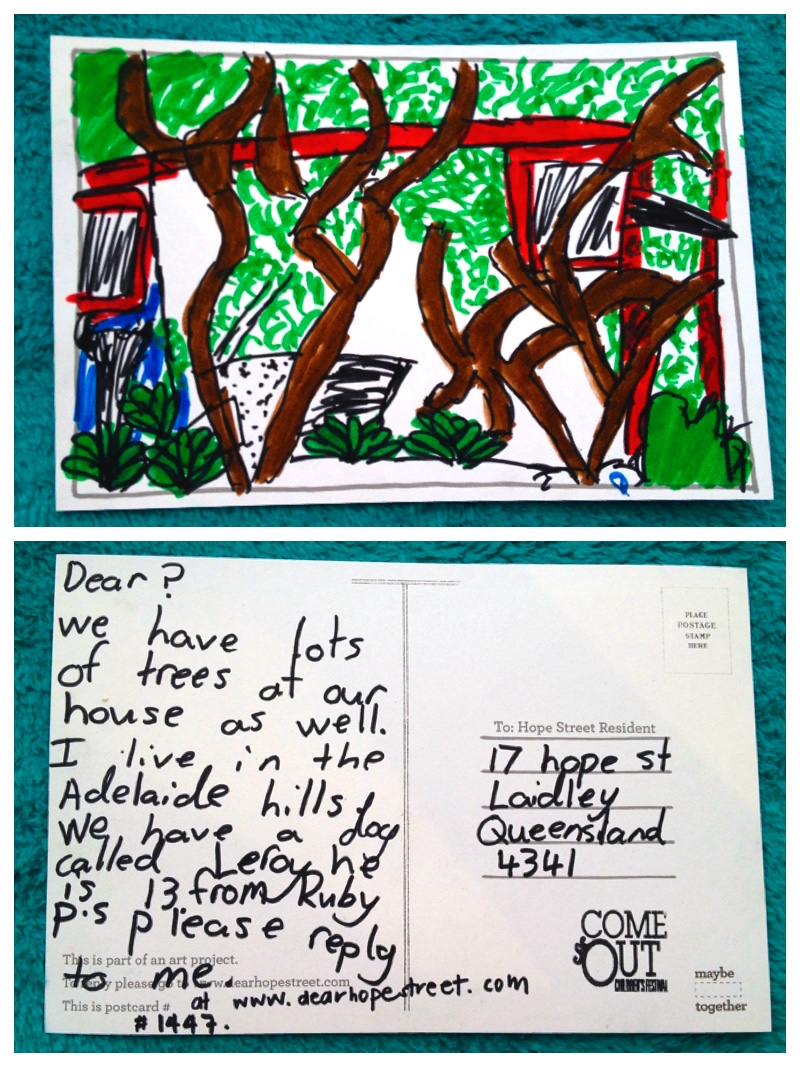 Dear ?
we have lots
of trees at our
house as well.
I live in the
Adelaide hills.
We have a dog
called Leroy he
is 13. from Ruby
P.S please reply
to me.
at www.dearhopestreet.com
#1447.
This is part of an art project.
To reply please go to www.dearhopestreet.com
This is postcard #
PLACE
POSTAGE
STAMP
HERE
To: Hope Street Resident
17 hope st
Laidley
Queensland
4341
COME
OUT
CHILDREN'S FESTIVAL
maybe
together